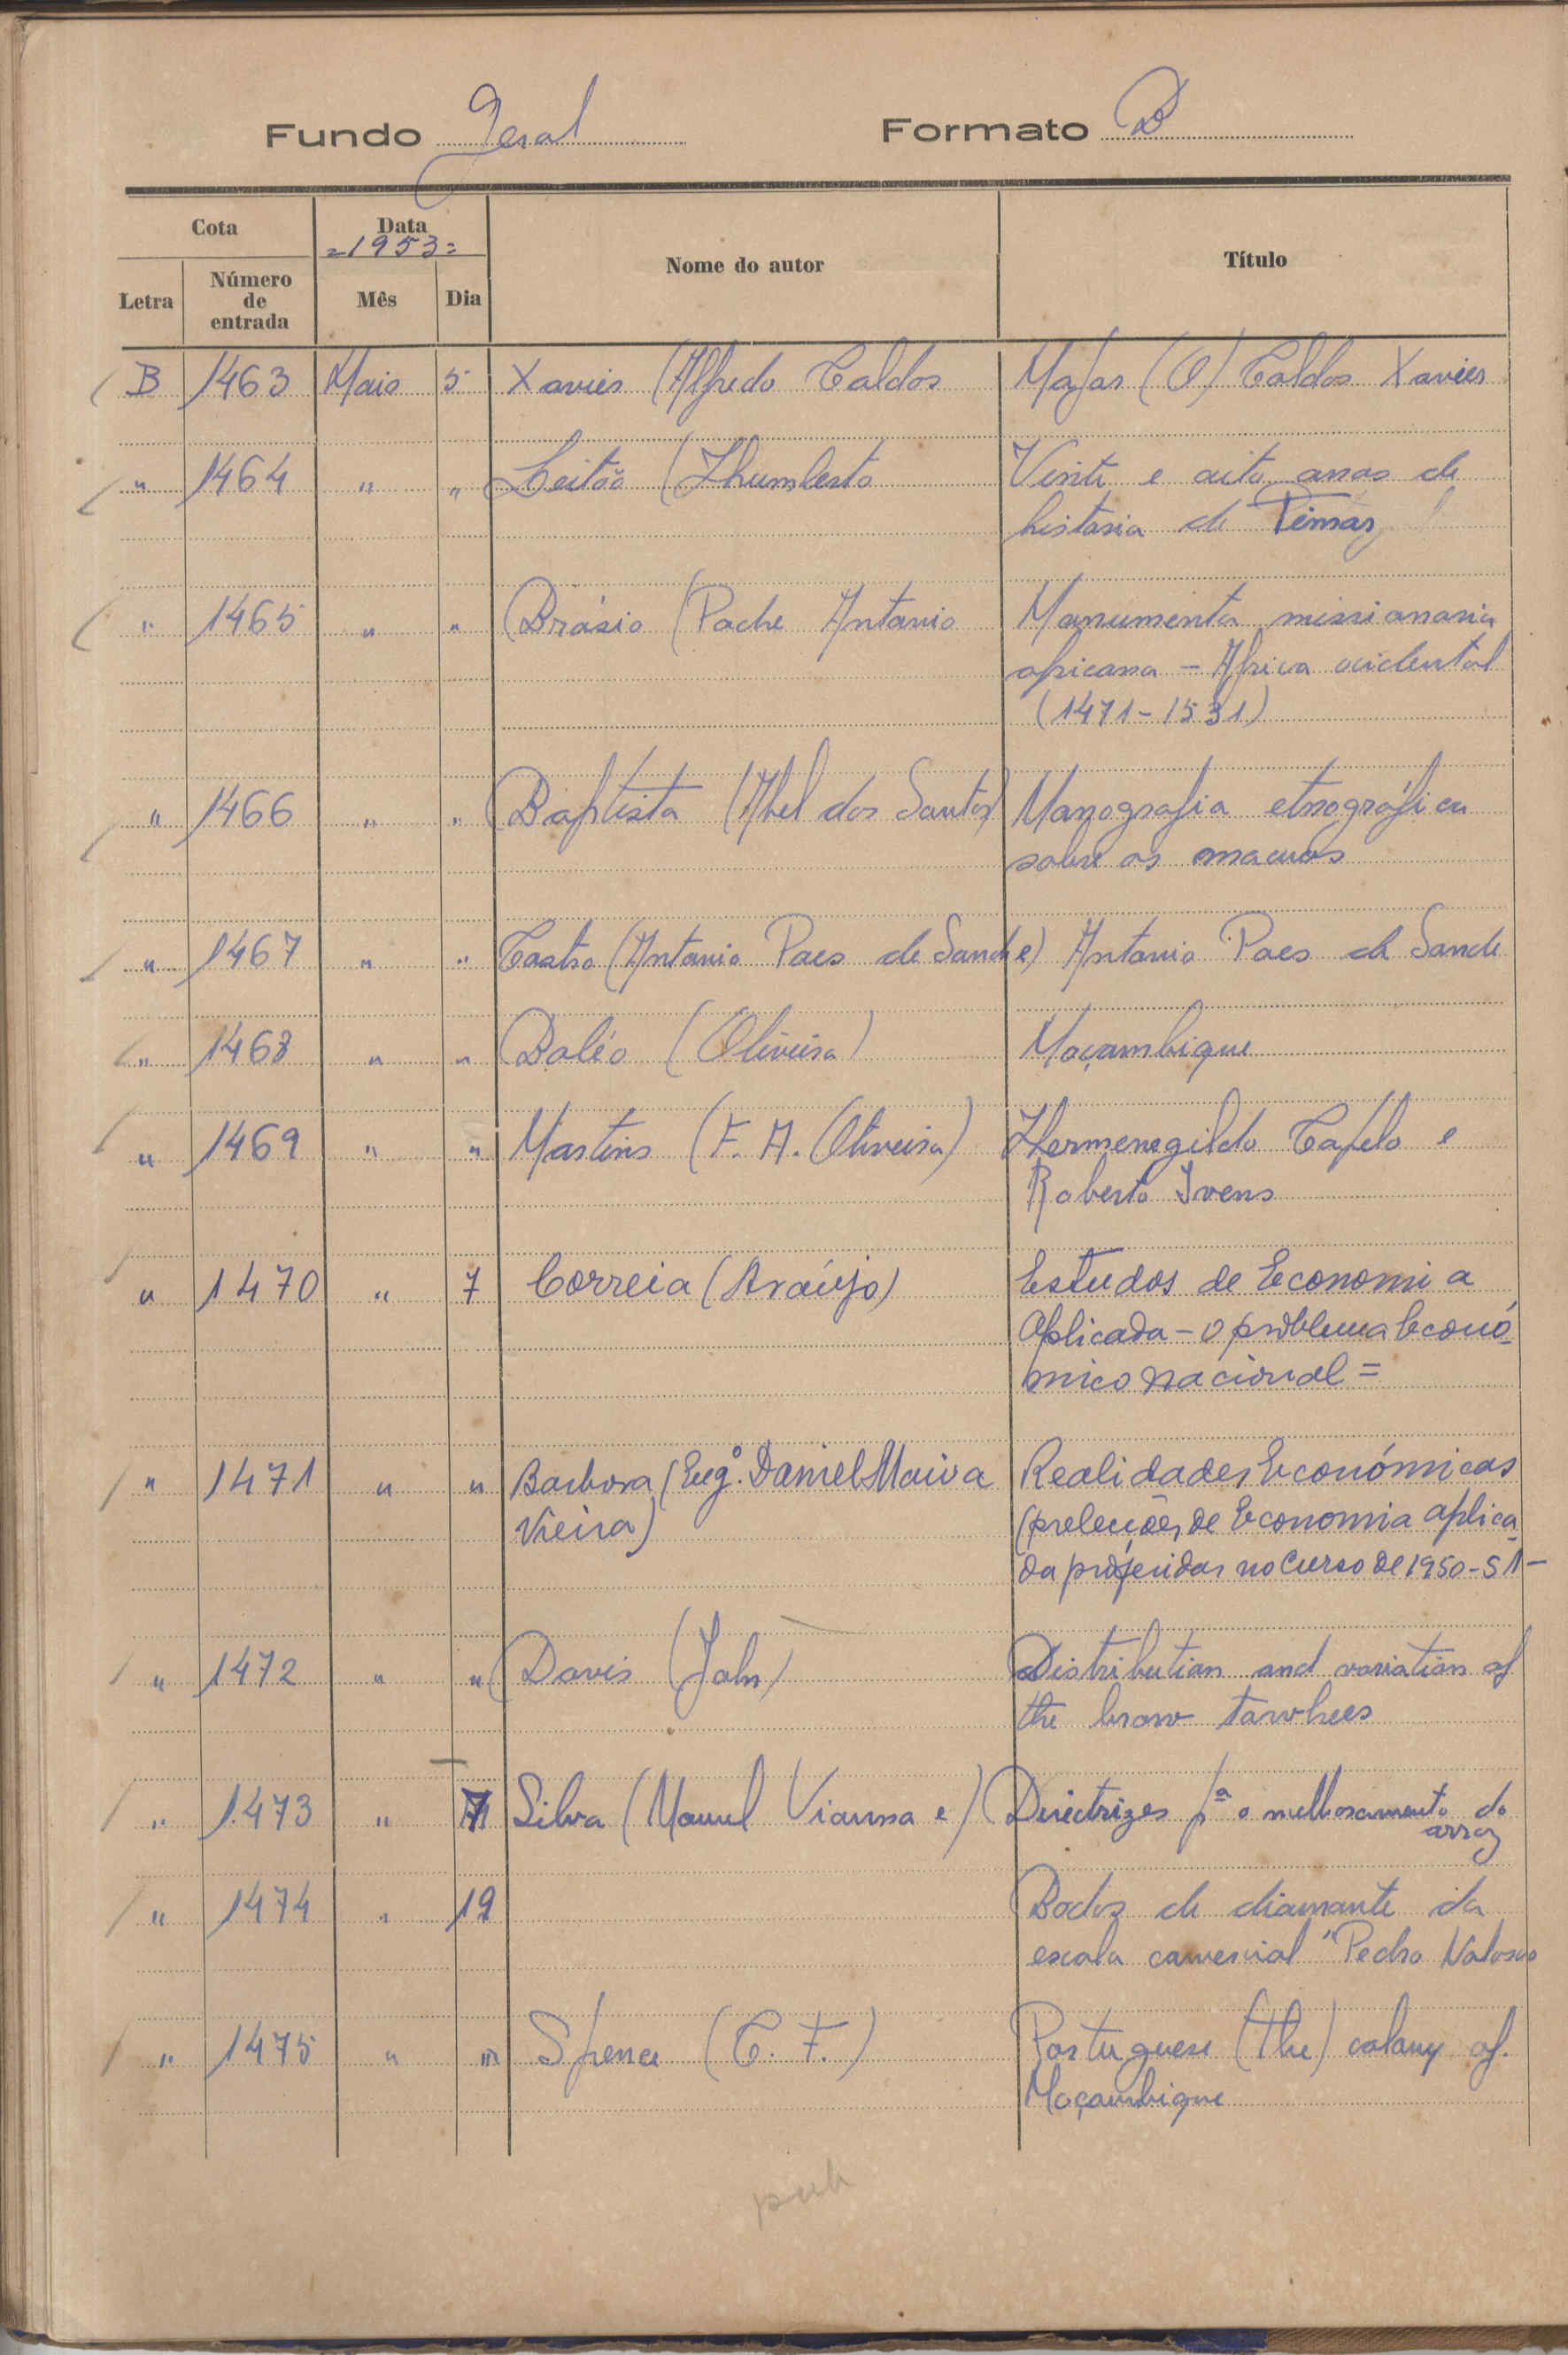 Fundo Geral Formato B
Cota Data Nome do autor Título
=1953=
Letra Número de entrada Mês Dia
B 1463 Maio 5 Xavier (Alfredo Caldas Major (O) Caldas Xavier
" 1464 " " Leitão (Humberto Vinte e oito anos de
história de Timor
" 1465 " " Brásio (Padre Antonio Monumenta missionaria
africana - Africa ocidental
(1471-1531)
" 1466 " " Baptista (Abel dos Santos) Monografia etnográfica
sobre os macuas
" 1467 " " Castro (Antonio Paes de Sande) Antonio Paes de Sande
" 1468 " " Boléo (Oliveira) Moçambique
" 1469 " " Martins (F. A. Oliveira) Hermenegildo Capelo e
Roberto Ivens
" 1470 " 7 Correia (Araújo) Estudos de Economia
Aplicada - o problema Econó-
mico nacional =
" 1471 " " Barbosa (Engº. Daniel Maria Realidades Económicas
Vieira) (prelecções de Economia aplica-
da proferidas no Curso de 1950-51-
" 1472 " " Davis (John) Distribution and variation of
the brow towhees
" 1473 " Silva (Manuel Vianna e) Directrizes pª o melhoramento do
arroz
" 1474 " 19 Bodas de diamante da
escola comercial "Pedro
" 1475 " " Spence (C. F.) Portuguese (the) colony of
Moçambique